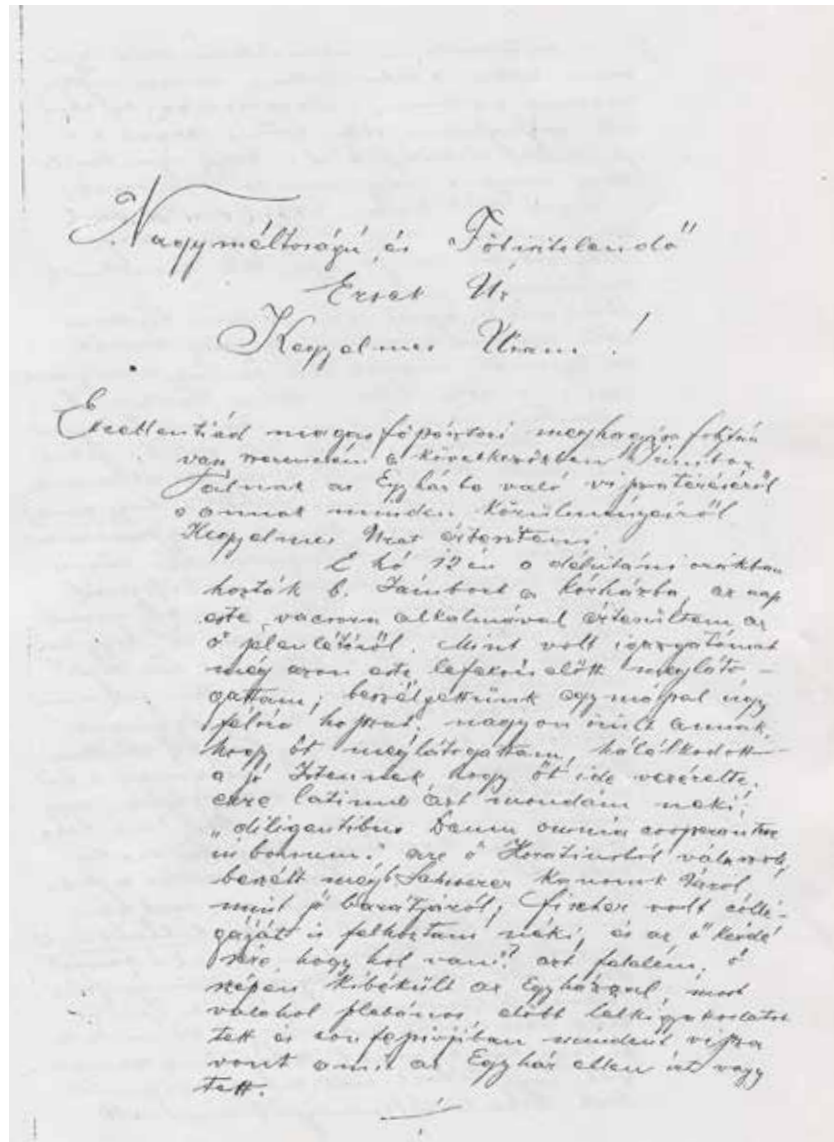 Nagyméltóságú és Főtisztelendő
Érsek Úr
Kegyelmes Uram!
Excellentiád magas főpásztori meghagyása folytán
van szerencsém a következőkben Jámbor
Pálnak az Egyházba való visszatéréséről
s annak minden körülményeiről
Kegyelmes Urat értesíteni.
E hó 12én a délutáni órákban
hozták b. Jámbort a kórházba, az nap
este, vacsora alkalmával értesültem az
ő jelenlétéről. Mint volt igazgatómat
még azon este lefekvés előtt megláto-
gattam; beszélgettünk egymással úgy
félóra hosszat, nagyon örült annak,
hogy őt meglátogattam, hálálkodott
a jó Istennek hogy őt ide vezérelte,
erre latinul azt mondám neki:
"diligentibus Deum omnia cooperantur
in bonum", erre ő Horatiustól válaszolt,
beszélt még Schwerer kanonok Úrról
mint jó barátjáról; Fischer volt collé-
gáját is felhoztam néki, és az ő kérdé
sére hogy hol van? azt felelém, ő
szépen kibékült az Egyházzal, most
valahol plebános, előtt lelkigyakorlatot
tett és confessiójában mindent vissza
vont amit az Egyház ellen írt vagy
tett.